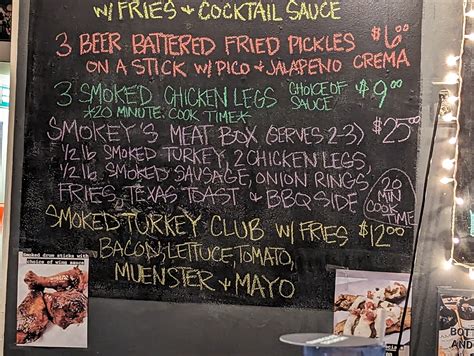 W/ FRIES + COCKTAIL SAUCE
3 BEER BATTERED FRIED PICKLES $6.00
ON A STICK W/ PICO + JALAPEÑO CREMA
3 SMOKED CHICKEN LEGS CHOICE OF SAUCE $9.00
*20 MINUTE COOK TIME*
SMOKEY'S MEAT BOX (SERVES 2-3) $25.00
1/2 lb SMOKED TURKEY, 2 CHICKEN LEGS,
1/2 lb SMOKED SAUSAGE, ONION RINGS,
FRIES, TEXAS TOAST + BBQ SIDE
20 MIN COOK TIME
SMOKED TURKEY CLUB W/ FRIES $12.00
BACON, LETTUCE, TOMATO,
MUENSTER + MAYO
Smoked drum sticks with
choice of wing sauce
BOT
AND